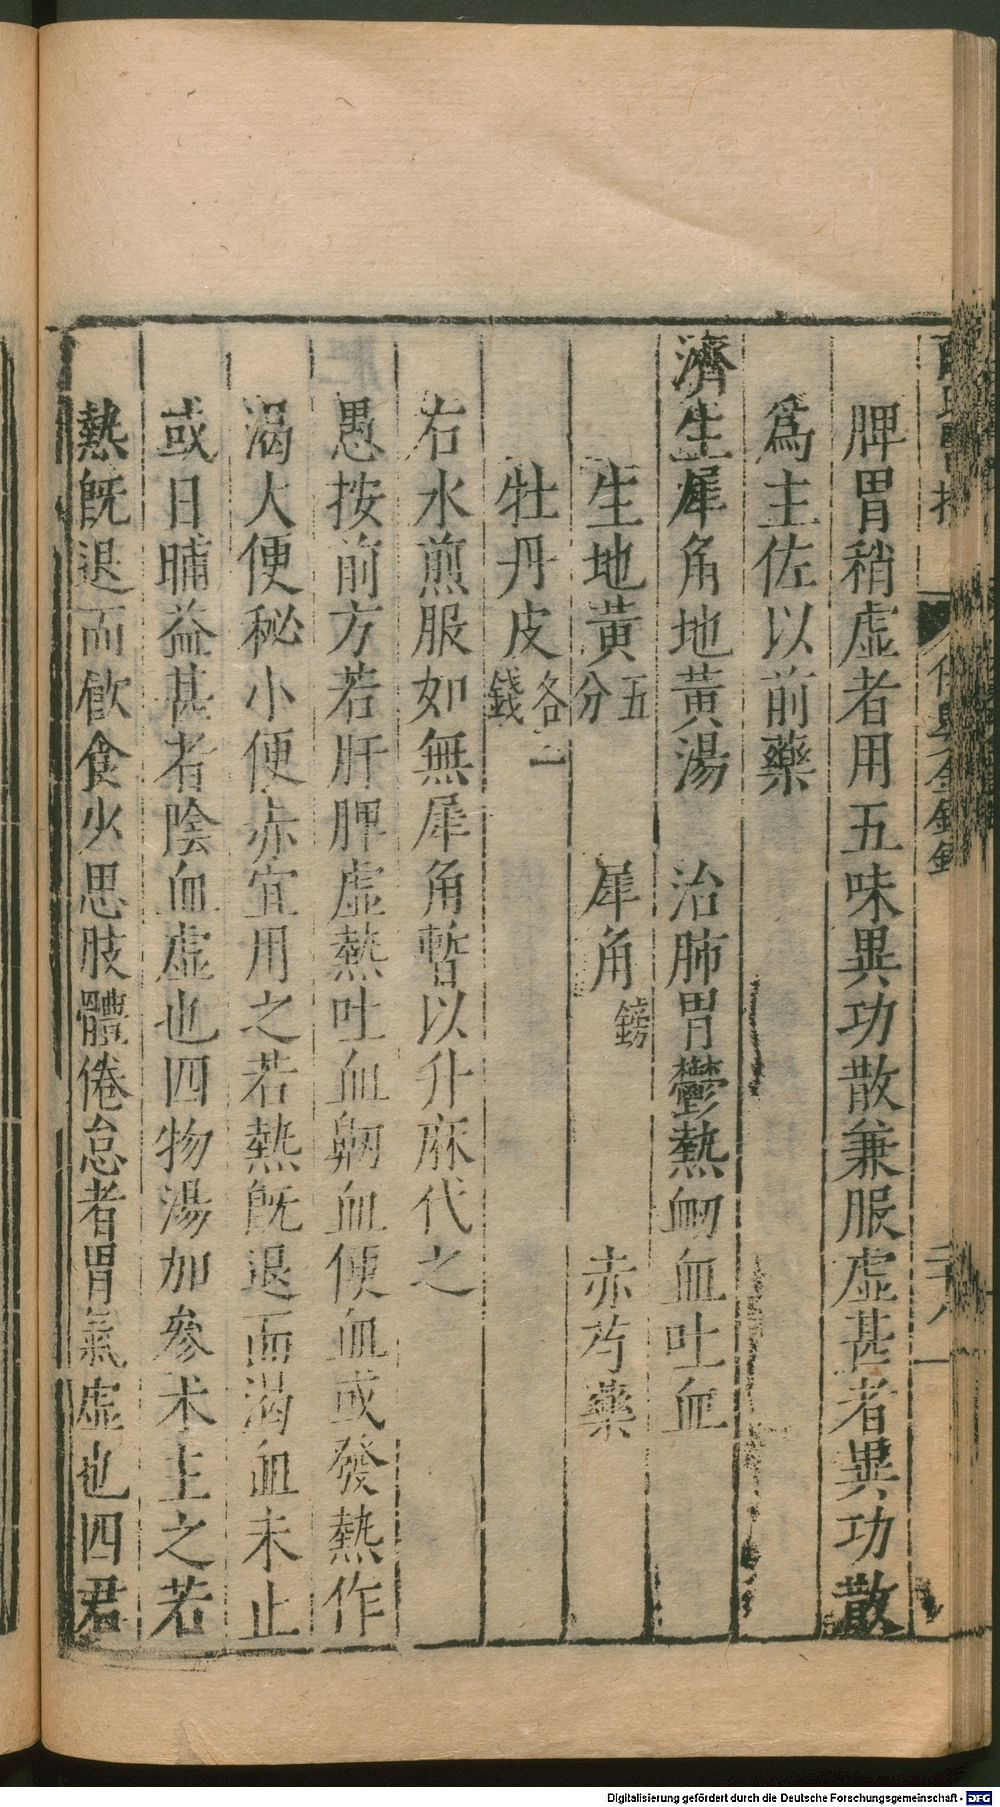 脾胃稍虛者用五味異功散兼服虛甚者異功散
爲主佐以前藥
濟生犀角地黃湯 治肺胃鬱熱衂血吐血
生地黃 五分 犀角 鎊 赤芍藥
牡丹皮 各一錢
右水煎服如無犀角暫以升麻代之
愚按前方若肝脾虛熱吐血衂血便血或發熱作
渴大便秘小便赤宜用之若熱旣退而渴血未止
或日晡益甚者陰血虛也四物湯加參术主之若
熱旣退而飮食少思肢體倦怠者胃氣虛也四君
Digitalisierung gefördert durch die Deutsche Forschungsgemeinschaft - DFG